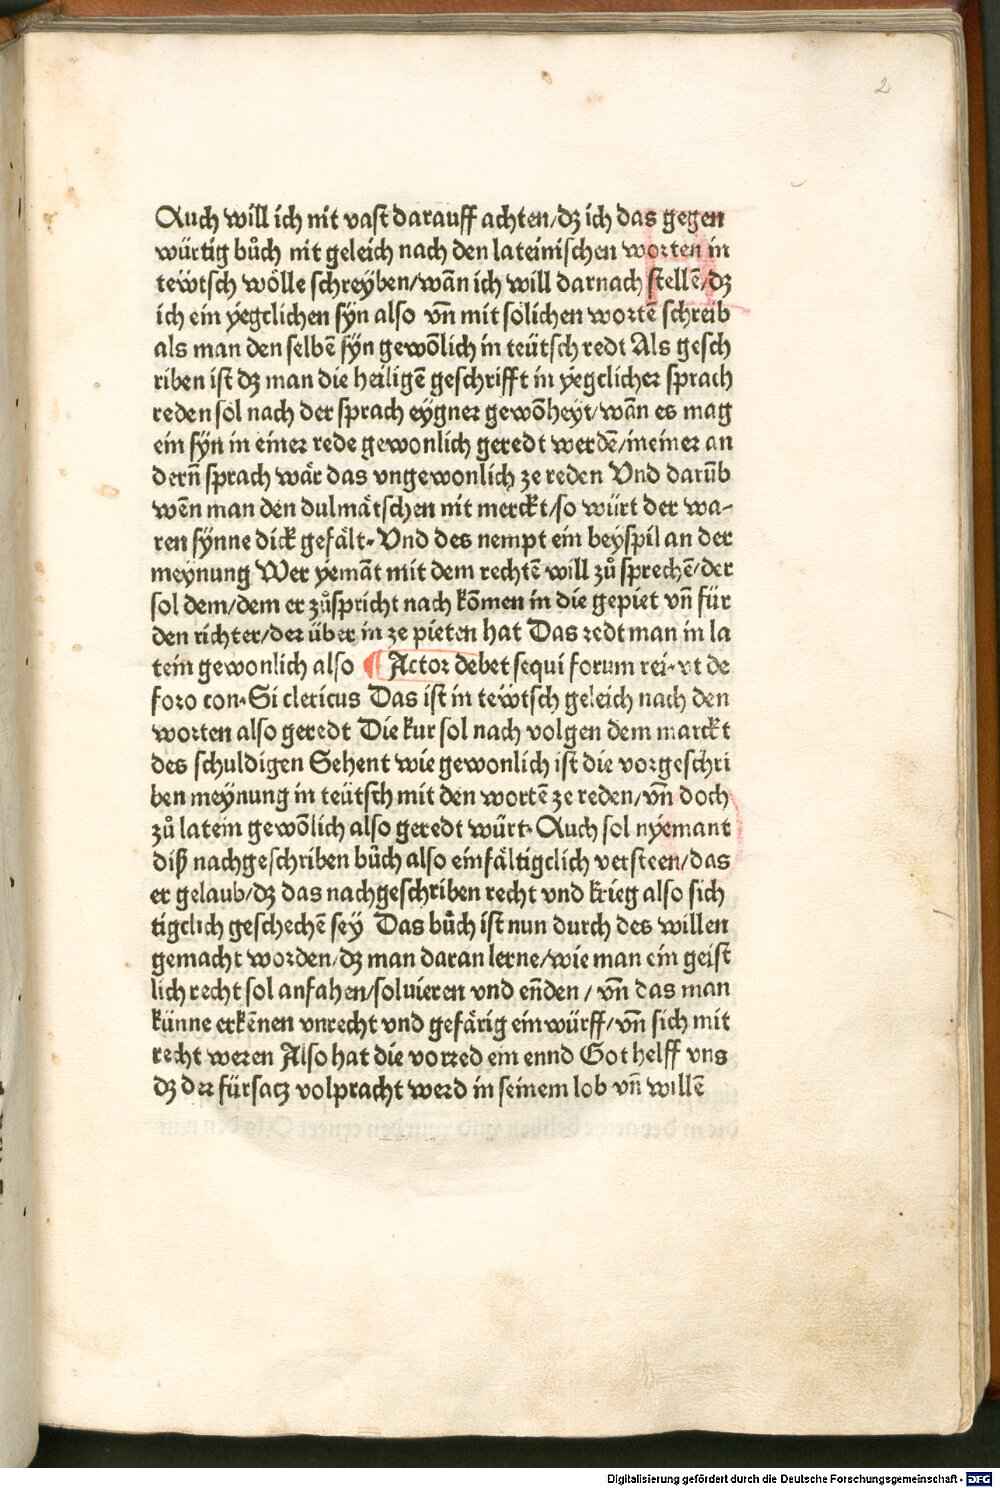 2
Auch will ich nit vast darauff achten/dz ich das gegen
würtig bůch nit geleich nach den lateinischen worten in
tewtsch wölle schreyben/wañ ich will darnach stellē/dz
ich ein yegclichen syn also vñ mit sölichen wortē schreib
als man den selbē syn gewõlich in teütsch redt Als gesch
riben ist dz man die heiligē geschrifft in yegclicher sprach
reden sol nach der sprach eygner gewõheyt/wañ es mag
ein syn in einer rede gewonlich geredt werdē/ineiner an
derñ sprach wär das vngewonlich ze reden Vnd darūb
wēn man den dulmätschen nit merckt/so würt der wa-
ren synne dick gefält. Vnd des nempt ein beyspil an der
meynung Wer yemāt mit dem rechtē will zů sprechē/der
sol dem/dem er zůspricht nach kõmen in die gepiet vñ für
den richter/der über in ze pieten hat Das redt man in la
tein gewonlich also ¶ Actor debet sequi forum rei. vt de
foro con. Si clericus Das ist in tewtsch geleich nach den
worten also geredt Die kur sol nach volgen dem marckt
des schuldigen Sehent wie gewonlich ist die vorgeschri
ben meynung in teütsch mit den wortē ze reden/vñ doch
zů latein gewõlich also geredt würt. Auch sol nyemant
diß nachgeschriben bůch also einfältigclich versteen/das
er gelaub/dz das nachgeschriben recht vnd krieg also sich
tigclich geschechē sey Das bůch ist nun durch des willen
gemacht worden/dz man daran lerne/wie man ein geist
lich recht sol anfahen/soluieren vnd eñden/vñ das man
künne erkēnen vnrecht vnd gefärig einwürff/vñ sich mit
recht weren Also hat die vorred ein ennd Got helff vns
dz der fürsacz volpracht werd in seinem lob vñ willē
Digitalisierung gefördert durch die Deutsche Forschungsgemeinschaft - DFG